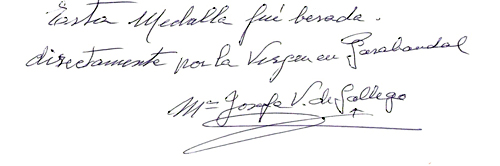 Esta Medalla fué besada.
directamente por la Virgen en Garabandal
Mª Josefa V. de Gallego